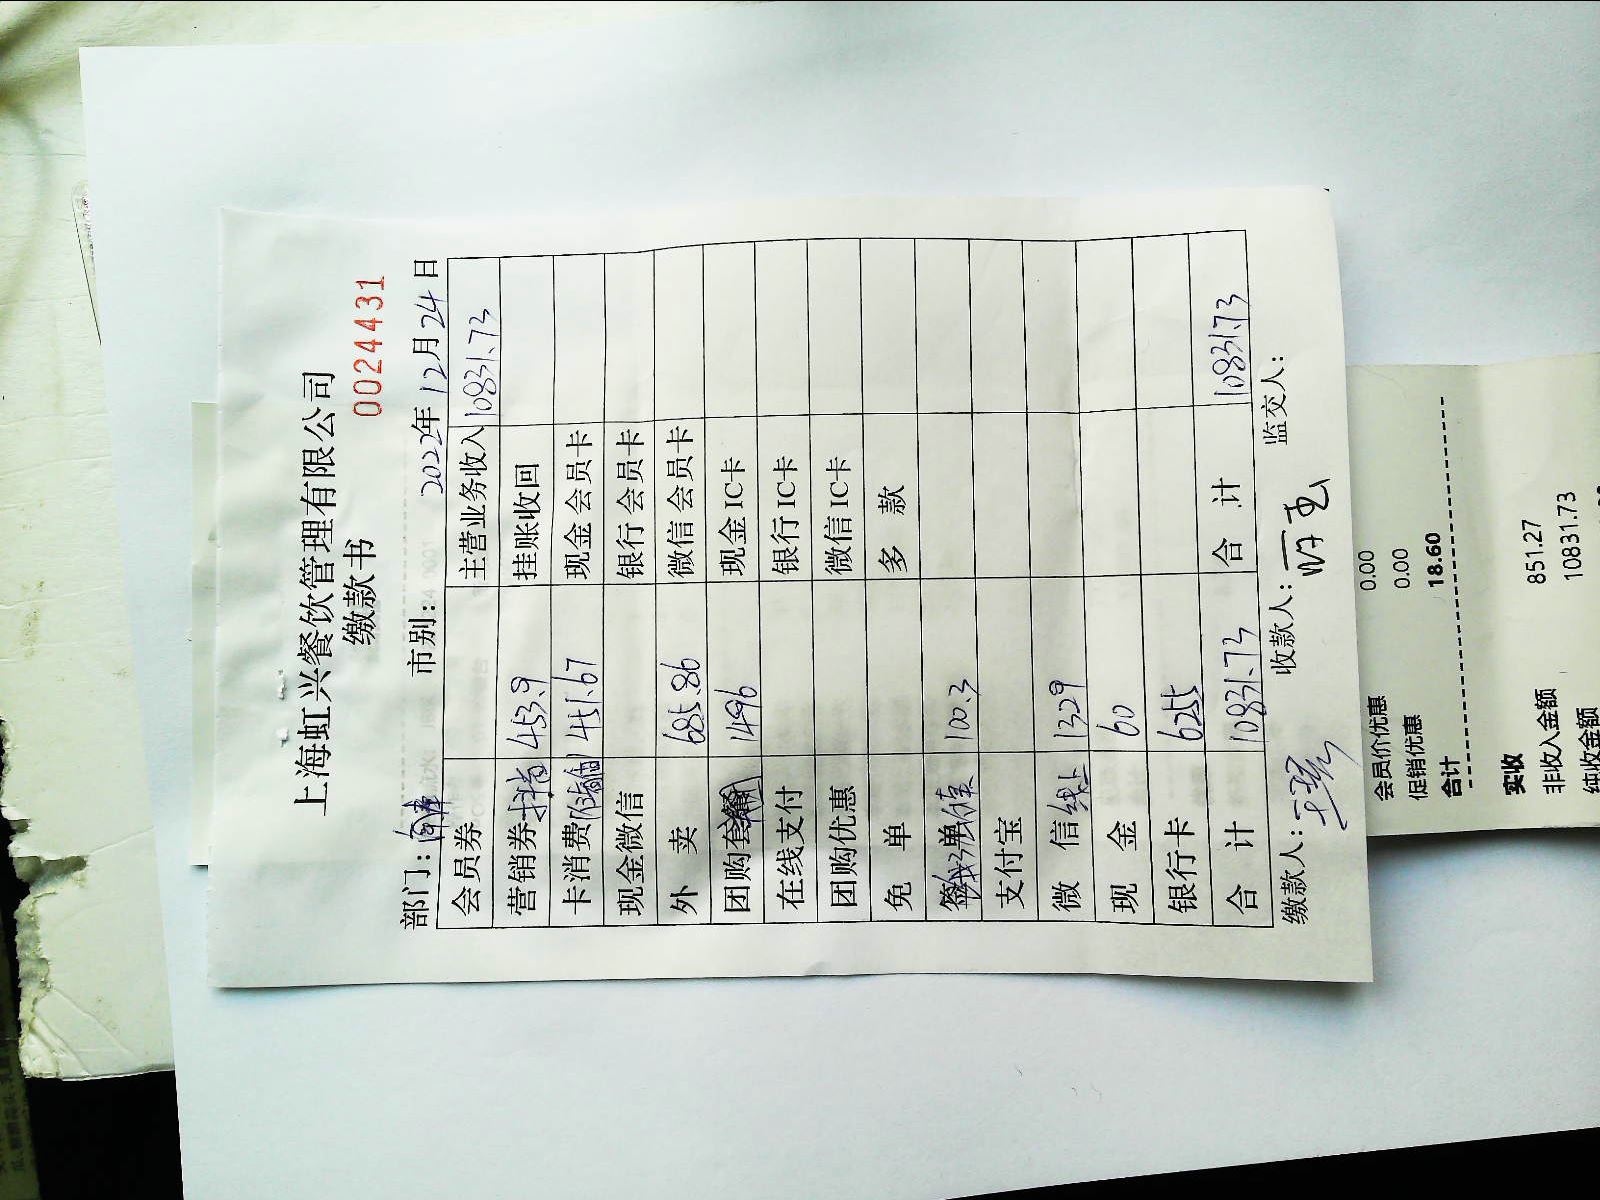 上海虹兴餐饮管理有限公司
缴款书
0024431
部门: 市别: 2022年12月24日
会员券 主营业务收入 10831.73
营销券 453.9 挂账收回
卡消费 451.67 现金会员卡
现金微信 银行会员卡
外卖 685.86 微信会员卡
团购套餐 1496 现金IC卡
在线支付 银行IC卡
团购优惠 微信IC卡
免单 多款
签单 100.3
支付宝
微信 线上 1329
现金 60
银行卡 6255
合计 10831.73 合计 10831.73
缴款人: 收款人: 监交人:
会员价优惠 0.00
促销优惠 0.00
合计 18.60
实收
非收入金额 851.27
纯收金额 10831.73